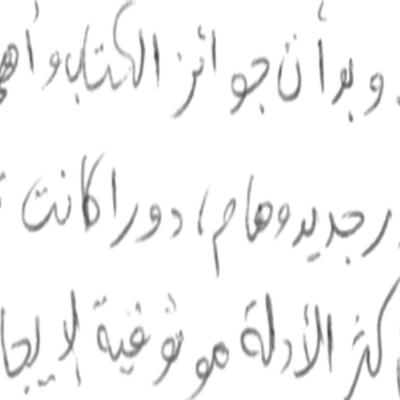 وبدأن جوائز الكتاب وأه
ر جديد وهام، دورا كانت
كثر الأدلة موثوقية لا يجا